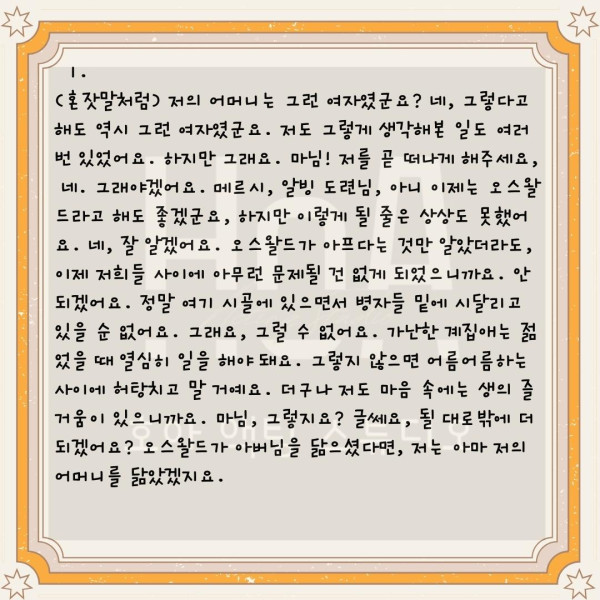 1.
(혼잣말처럼) 저의 어머니는 그런 여자였군요? 네, 그렇다고
해도 역시 그런 여자였군요. 저도 그렇게 생각해본 일도 여러
번 있었어요. 하지만 그래요. 마님! 저를 곧 떠나게 해주세요,
네. 그래야겠어요. 메르시, 알빙 도련님, 아니 이제는 오스왈
드라고 해도 좋겠군요, 하지만 이렇게 될 줄은 상상도 못했어
요. 네, 잘 알겠어요. 오스왈드가 아프다는 것만 알았더라도,
이제 저희들 사이에 아무런 문제될 건 없게 되었으니까요. 안
되겠어요. 정말 여기 시골에 있으면서 병자들 밑에 시달리고
있을 순 없어요. 그래요, 그럴 수 없어요. 가난한 계집애는 젊
었을 때 열심히 일을 해야 돼요. 그렇지 않으면 어름어름하는
사이에 허탕치고 말 거예요. 더구나 저도 마음 속에는 생의 즐
거움이 있으니까요. 마님, 그렇지요? 글쎄요, 될 대로밖에 더
되겠어요? 오스왈드가 아버님을 닮으셨다면, 저는 아마 저의
어머니를 닮았겠지요.
HnA
호아 액팅 스튜디오